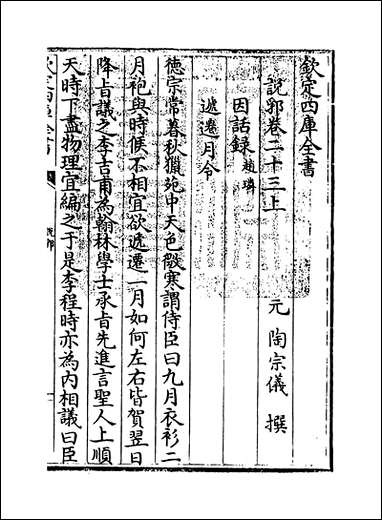 欽定四庫全書
說郛卷二十三上
元 陶宗儀 撰
因話錄 趙璘
遞遷月令
德宗常暮秋獵苑中天色微寒謂侍臣曰九月衣衫二
月袍與時候不相宜欲遞遷一月如何左右皆賀翌日
降旨議之李吉甫為翰林學士承旨先進言聖人上順
天時下盡物理宜編之于是李程時亦為內相議曰臣
欽定四庫全書
說郛